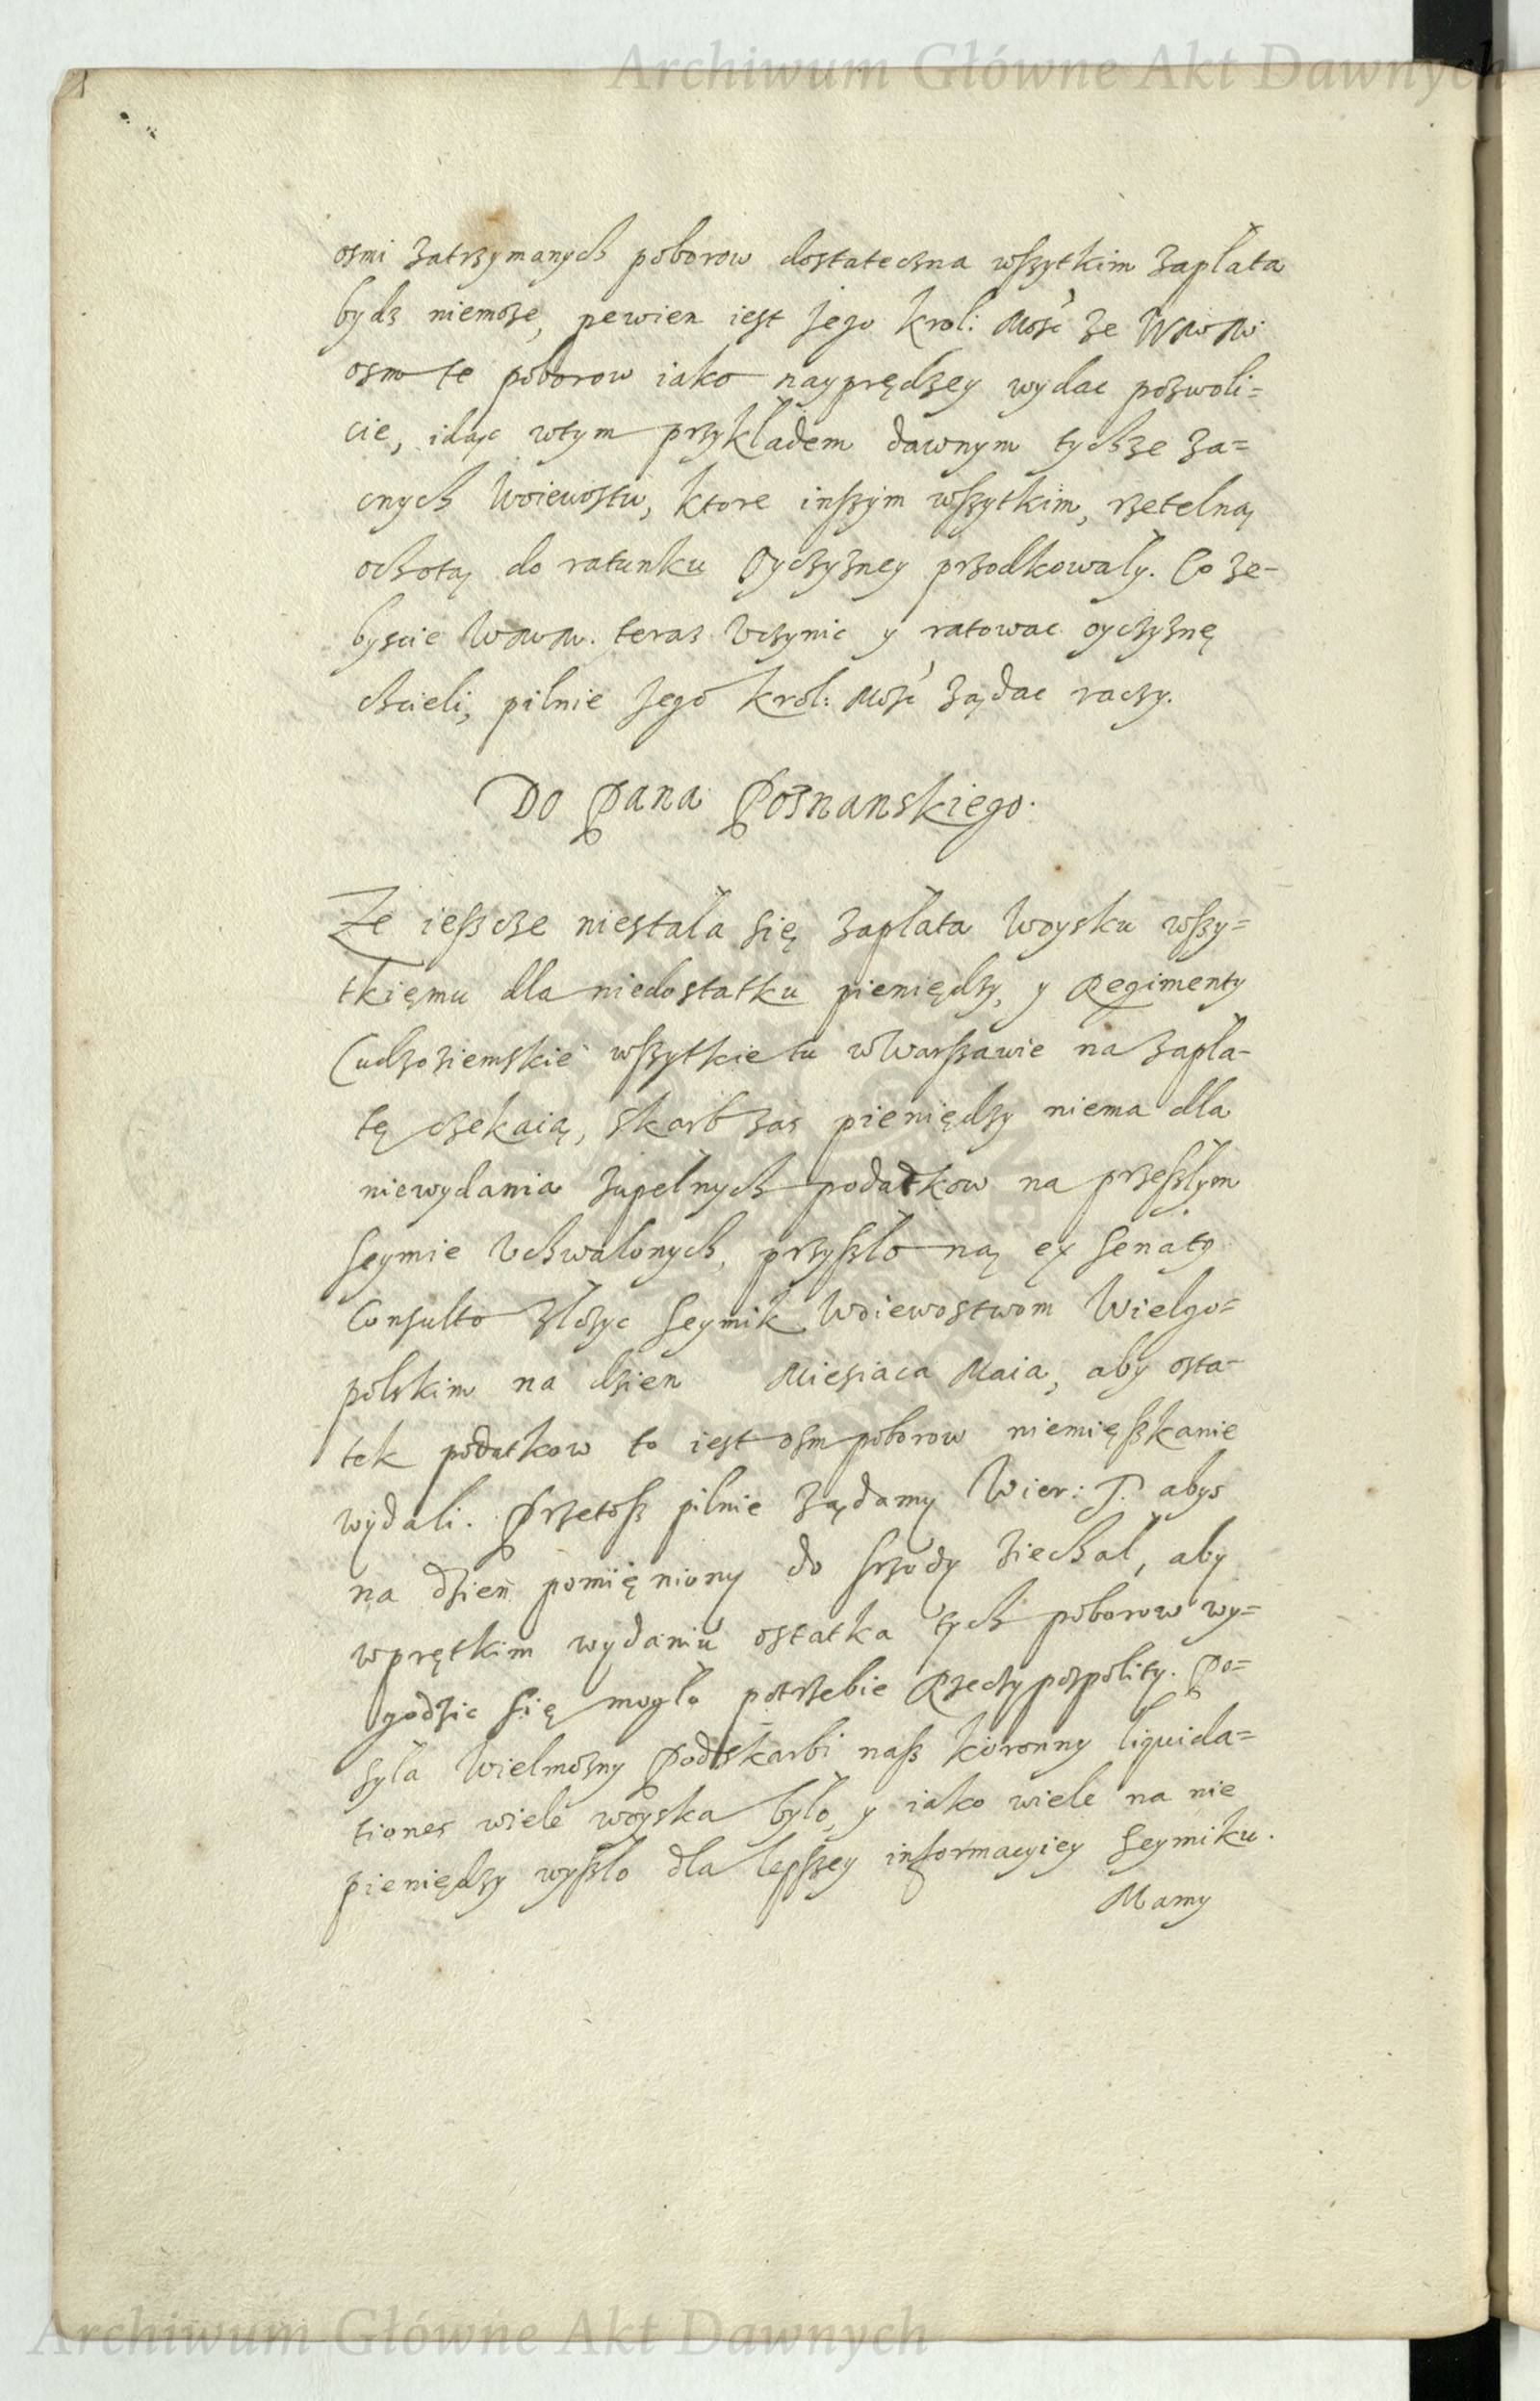 Archiwum Główne Akt Dawnych
osmi zatrzymanych poborow dostateczna wszytkim zapłata
bydz niemoze, pewien iest Jego Krol: Mość ze WMM
osm te poborow iako nayprędzey wydac pozwoli=
cie, idąc wtym przykładem dawnym tychze za=
cnych Woiewostw, ktore inszym wszytkim, rzetelną
ochotą do ratunku Oyczyzney przodkowały. Co ze-
byscie WMM. teraz Vczynic y ratowac oyczyznę
chcieli, pilnie Jego Krol: Mość ządac raczy.
Do Pana Poznanskiego.
Ze ieszcze niestała się zapłata Woysku wszy=
tkięmu dla niedostatku pieniędzy, y Regimenty
Cudzoziemskie wszytkie tu wWarszawie na zapła-
tę czekaią, skarb zas pieniędzy niema dla
niewydania zupełnych podatkow na przeszłym
Seymie Vchwalonych, przyszło ną ex Senatus
Consulto złozyc Seymik Woiewostwom Wielgo=
polskim na dzien Miesiaca Maia, aby osta=
tek podatkow to iest osm poborow niemięszkanie
wydali. Przetosz pilnie ządamy Wier: T. abys
na dzien pomięniony do Srzody ziechał, aby
wprętkim wydaniu ostatka tych poborow wy=
godzic się mogło potrzebie Rzeczypospolity. Po=
syla Wielmozny Podskarbi nasz koronny liquida=
tiones wiele woyska było, y iako wiele na nie
pieniędzy wyszło dla lepszey informacyiey Seymiku.
Mamy
Archiwum Główne Akt Dawnych